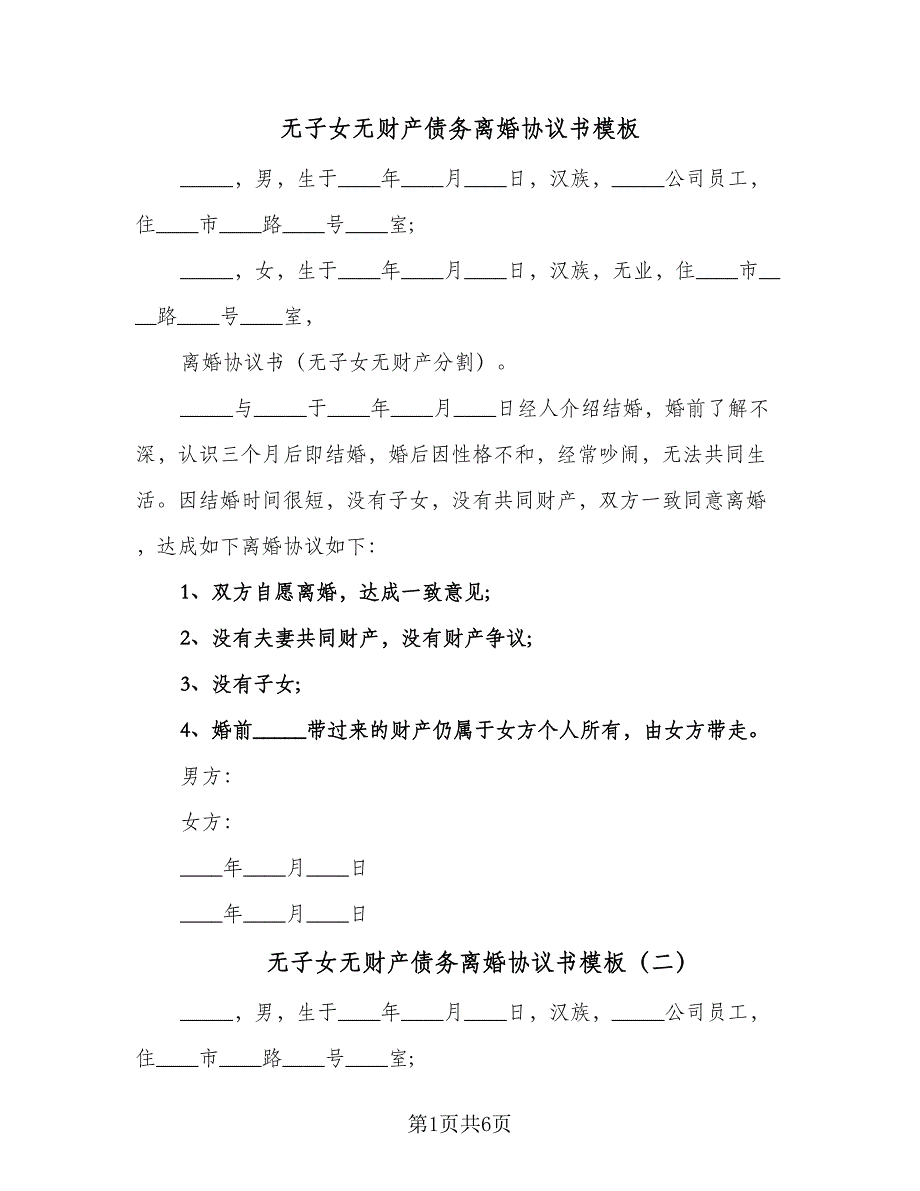 无子女无财产债务离婚协议书模板
_____，男，生于____年____月____日，汉族，_____公司员工，
住____市____路____号____室;
_____，女，生于____年____月____日，汉族，无业，住____市__
__路____号____室，
离婚协议书（无子女无财产分割）。
_____与_____于____年____月____日经人介绍结婚，婚前了解不
深，认识三个月后即结婚，婚后因性格不和，经常吵闹，无法共同生
活。因结婚时间很短，没有子女，没有共同财产，双方一致同意离婚
，达成如下离婚协议如下：
1、双方自愿离婚，达成一致意见;
2、没有夫妻共同财产，没有财产争议;
3、没有子女;
4、婚前_____带过来的财产仍属于女方个人所有，由女方带走。
男方：
女方：
____年____月____日
____年____月____日
无子女无财产债务离婚协议书模板（二）
_____，男，生于____年____月____日，汉族，_____公司员工，
住____市____路____号____室;
第1页共6页